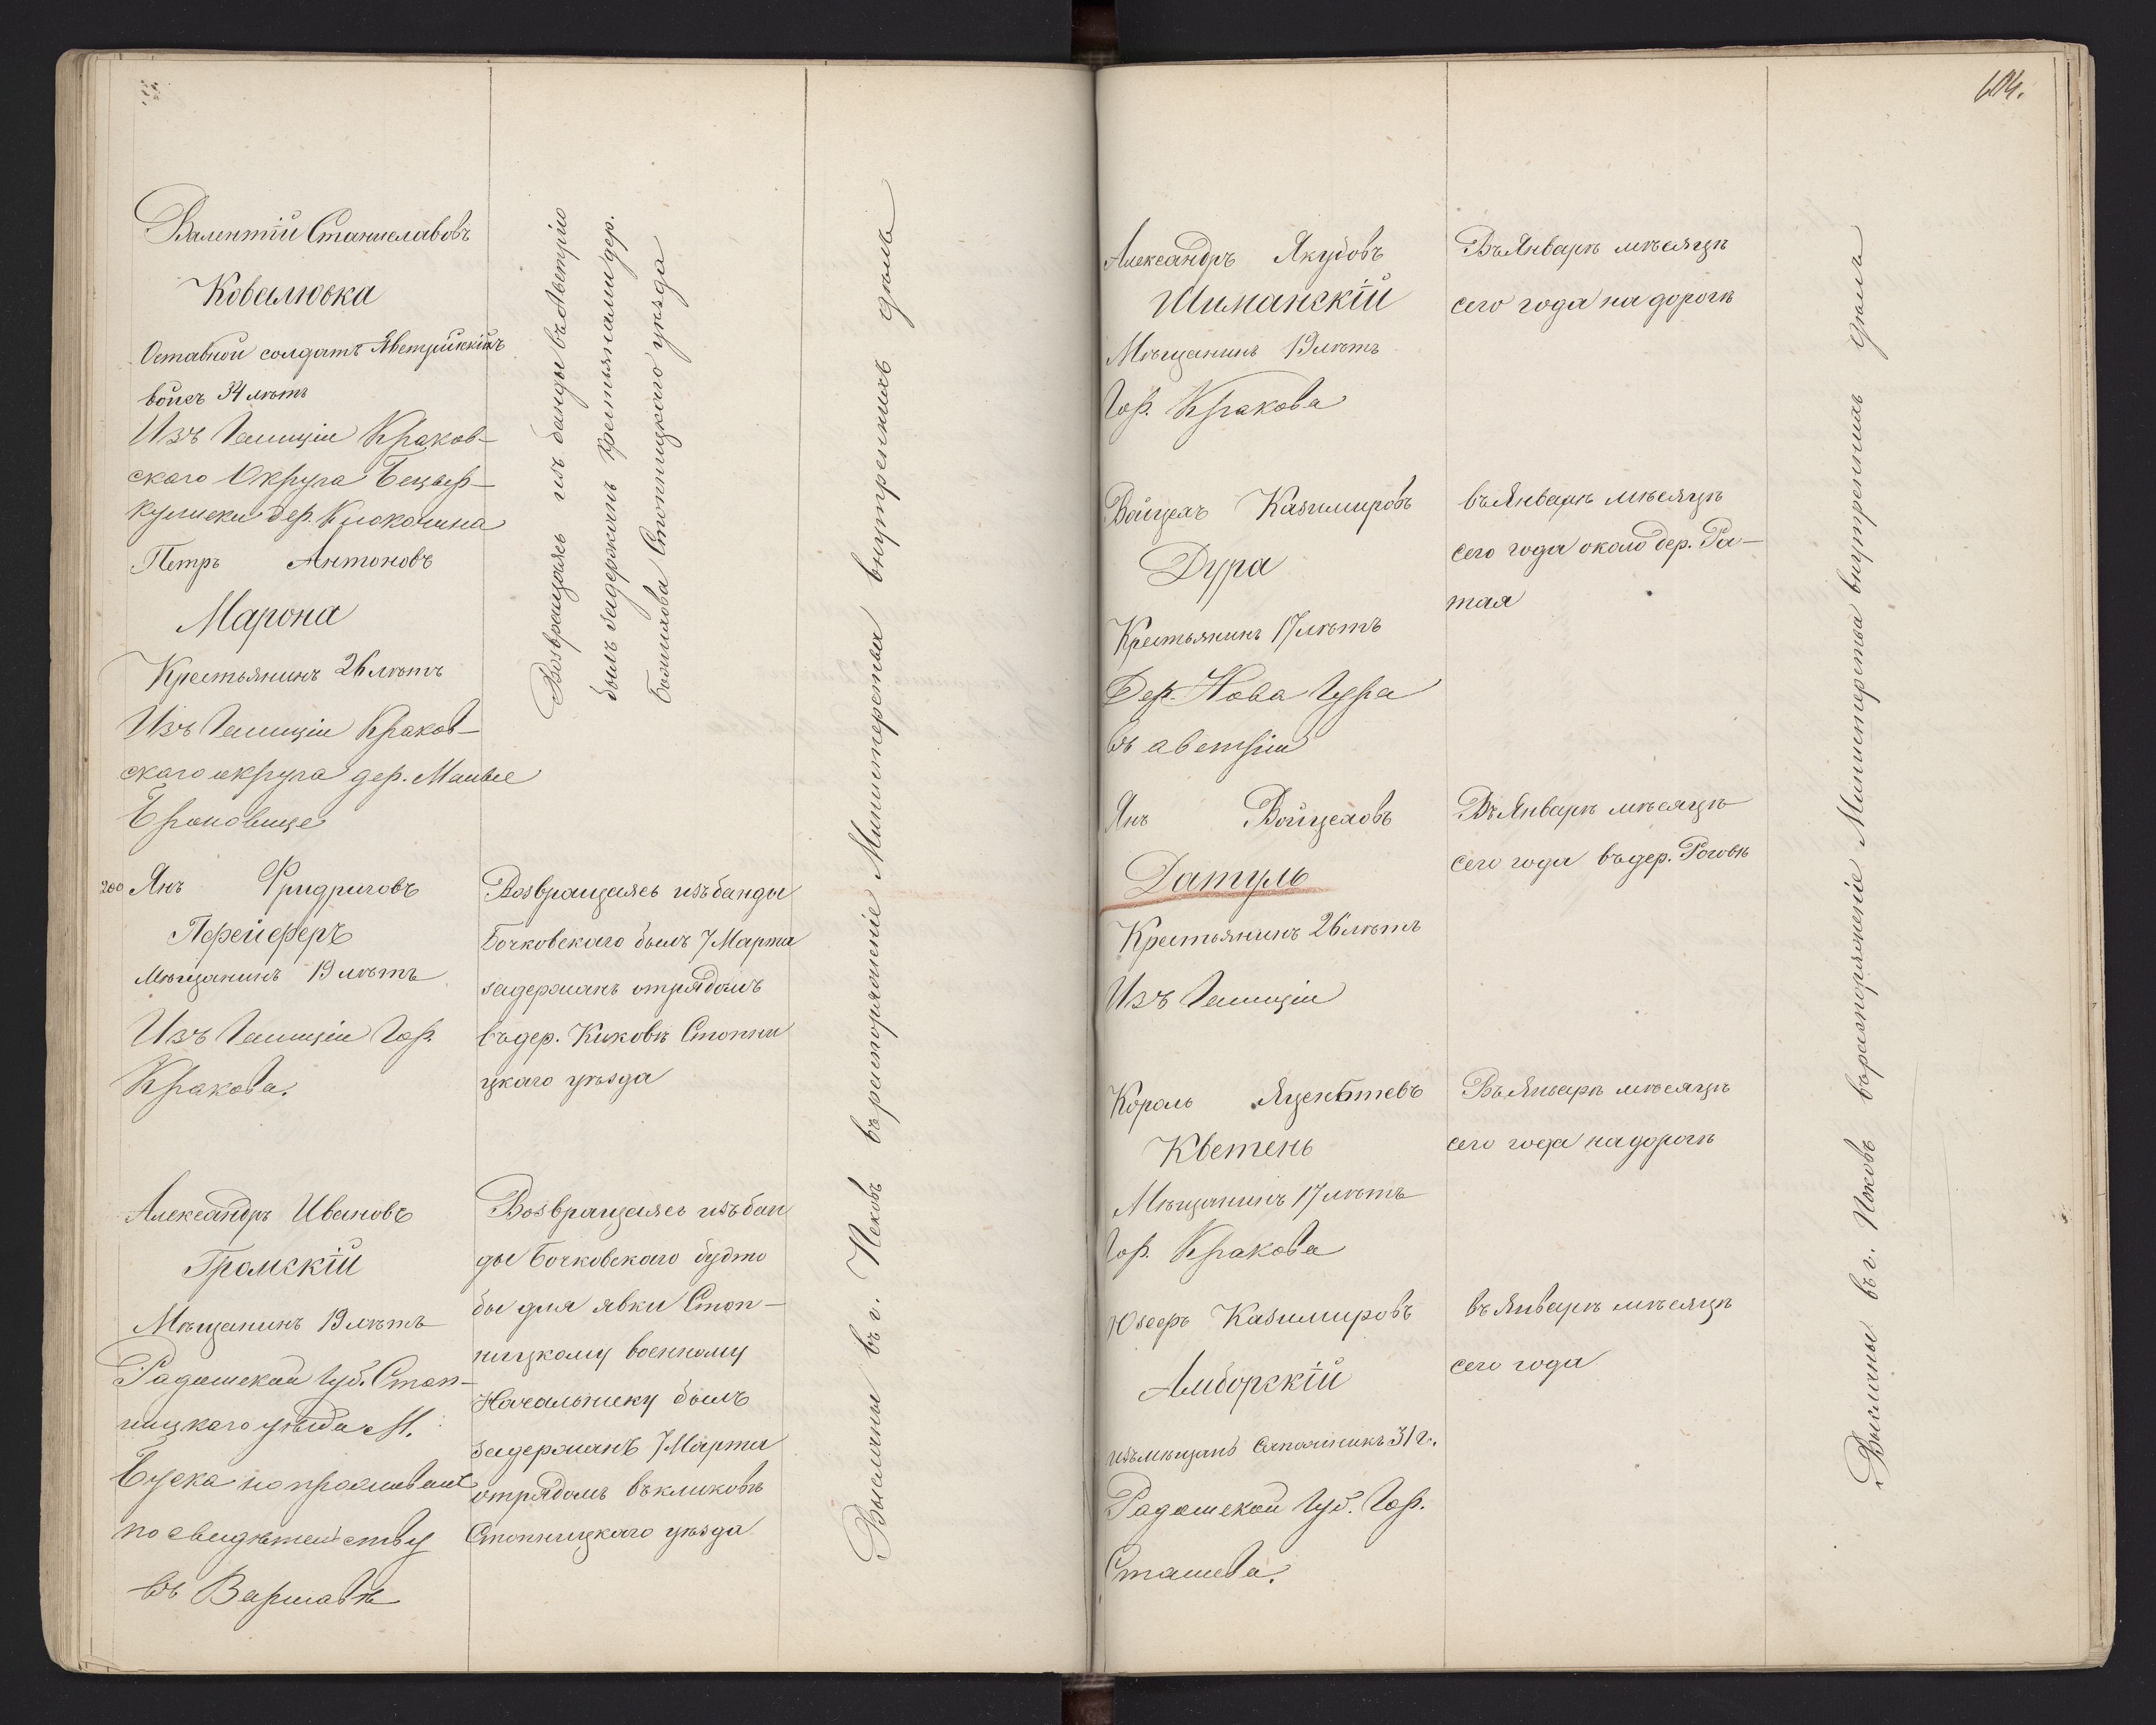 Валентій Станиславовъ
Ковалювка
Оставной солдатъ Австрійскихъ
войскъ 34 лѣтъ
Изъ Галиціи Краков-
скаго Округа
дер.
Петръ Антоновъ
Марона
Крестьянинъ 26 лѣтъ
Изъ Галиціи Краков-
скаго округа дер. Малые
Броновице
Возвращаясь изъ банды въ Австрію
былъ задержанъ крестьянами дер.
Стопницкаго уѣзда
200 Янъ Фридриховъ
Пфейферъ
Мѣщанинъ 19 лѣтъ
Изъ Галиціи Гор.
Кракова.
Возвращаясь изъ банды
Бочковскаго былъ 7 Марта
задержанъ отрядомъ
въ дер. Киковѣ Стопни
цкаго уѣзда
Александръ Ивановъ
Громскій
Мѣщанинъ 19 лѣтъ
Радомской Губ. Стоп-
ницкаго уѣзда М.
Буска но проживалъ
по свидѣтельству
въ Варшавѣ
Возвращаясь изъ бан
ды Бочковскаго будто
бы для явки Стоп-
ницкому военному
Начальнику былъ
задержанъ 7 Марта
отрядомъ въ Кликовѣ
Стопницкаго уѣзда
Высланы въ г. Псковъ въ распоряженіе Министерства внутреннихъ дѣлъ
604.
Александръ Якубовъ
Шиманскій
Мѣщанинъ 19 лѣтъ
Гор. Кракова
Въ Январѣ мѣсяцѣ
сего года на дорогѣ
Войцехъ Казимировъ
Дура
Крестьянинъ 17 лѣтъ
Дер. Нова Гура
въ австріи
въ Январѣ мѣсяцѣ
сего года около дер. Ра-
тая
Янъ Войцеховъ
Датуль
Крестьянинъ 26 лѣтъ
Изъ Галиціи
Въ Январѣ мѣсяцѣ
сего года въ дер. Роговѣ
Король Яцентьевъ
Кветень
Мѣщанинъ 17 лѣтъ
Гор. Кракова
Въ Январѣ мѣсяцѣ
сего года на дорогѣ
Юзефъ Казимировъ
Амборскій
изъ мѣщанъ сапожникъ 31 г.
Радомской Губ. Гор.
Сташева.
въ Январѣ мѣсяцѣ
сего года
Высланы въ г. Псковъ въ распоряженіе Министерства внутреннихъ дѣлъ